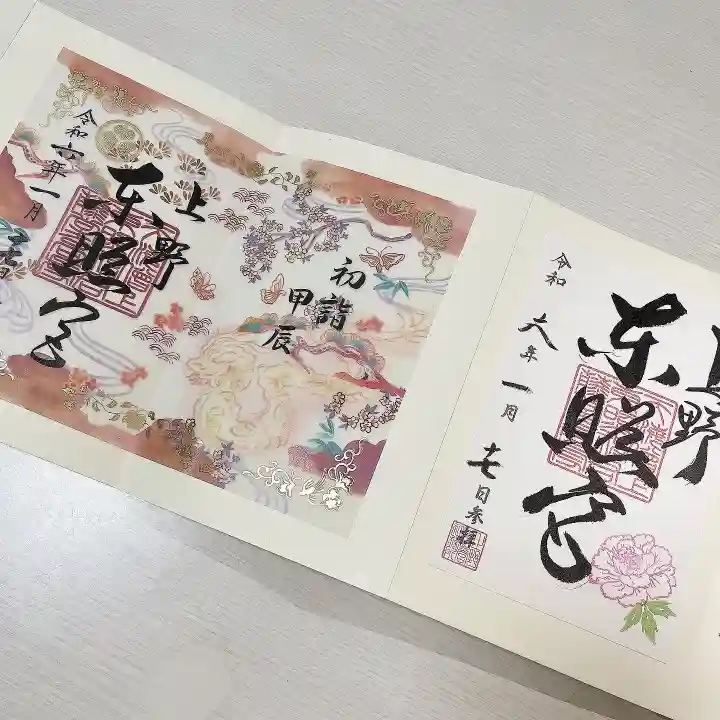 上野
東照宮
令和
六年
一月
十七日参
拝
初詣
甲辰
上野
東照宮
令和六年一月